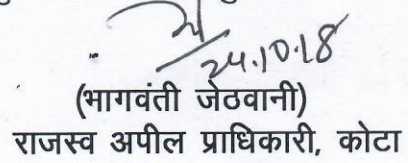 24.10.18
(भागवंती जेठवानी)
राजस्व अपील प्राधिकारी, कोटा